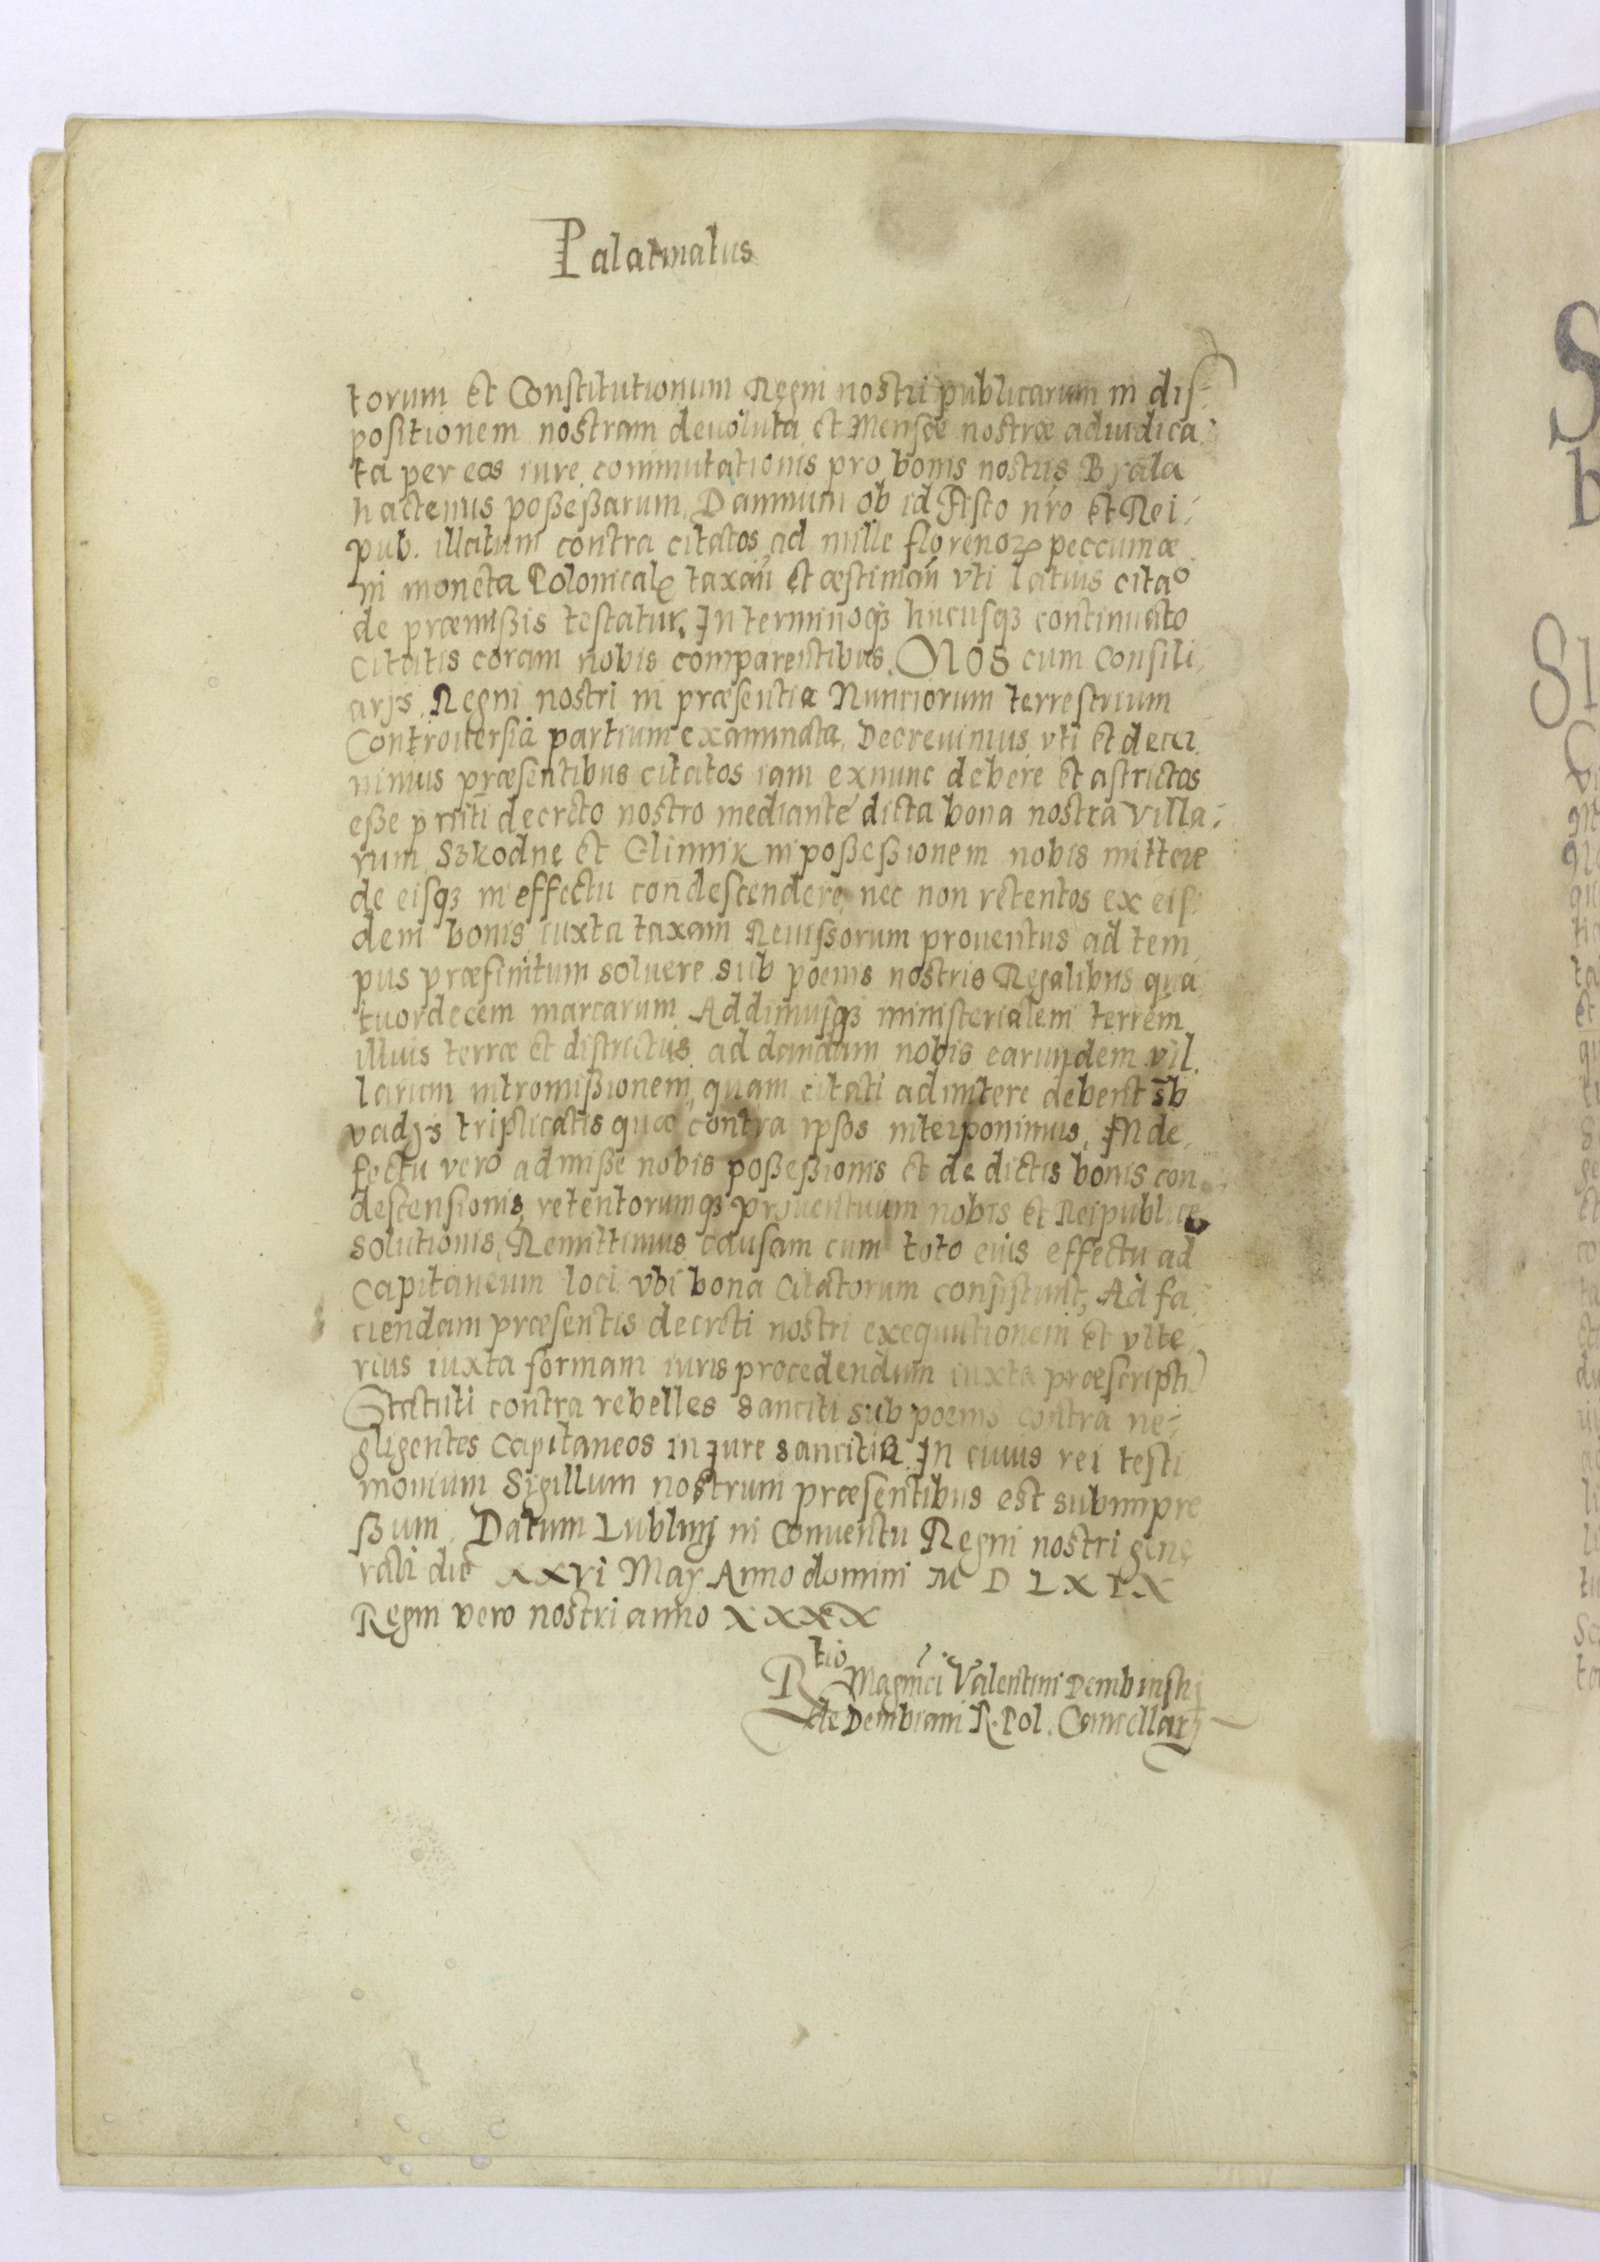 Palatinatus
torum et Constitutionum Regni nostri publicarum in dis-
positionem nostram deuoluta et Mensæ nostræ adiudica-
ta per eos iure commutationis pro bonis nostris Biala
hactenus poßeßarum, Damnum ob id Fisco nr̄o et Rei-
pub. illatum contra citatos ad mille florenoꝝ peccuniæ
in moneta Polonicalꝭ taxan̄ et æstiman̄ vti latius citaᵒ
de præmißis testatur. In terminoqꝫ hucusqꝫ continuato
citatis coram nobis comparentibus. NOS cum Consili-
arijs Regni nostri in præsentia Nunciorum terrestrium
Controuersia partium examinata, Decreuimus vti et decer-
nimus præsentibus citatos iam exnunc debere et astrictos
eße pn̄ti decreto nostro mediante dicta bona nostra villa-
rum Szkodne et Glinnik in poßeßionem nobis mittere
de eisqꝫ in effectu condescendere, nec non retentos ex eis-
dem bonis iuxta taxam Reuissorum prouentus ad tem-
pus præfinitum soluere sub pœnis nostris Regalibus qua-
tuordecem marcarum. Addimusqꝫ ministerialem terrēm
illius terræ et districtus ad dandam nobis earundem vil-
larum intromißionem, quam citati admittere debent sb̄
vadijs triplicatis quæ contra ipsos interponimus. In de-
fectu vero admißę nobis poßeßionis et de dictis bonis con-
descensionis, retentorumqꝫ prouentuum nobis et Reipublicę
solutionis, Remittimus causam cum toto eius effectu ad
Capitaneum loci vbi bona Citatorum consistunt, Ad fa-
ciendam præsentis decreti nostri exequutionem et vlte-
rius iuxta formam iuris procedendum iuxta præscriptū
Statuti contra rebelles sanciti sub pœnis contra ne-
gligentes Capitaneos in Jure sancitis. In cuius rei testi
monium Sigillum nostrum præsentibus est subimpre
ßum. Datum Lublinij in Conuentu Regni nostri gene
rali die XXVI Maij Anno domini M D LXIX
Regni vero nostri anno XXXX
Rtio Magnīci Valentini Dembinskj
de Dembiani R. Pol. Cancellarij